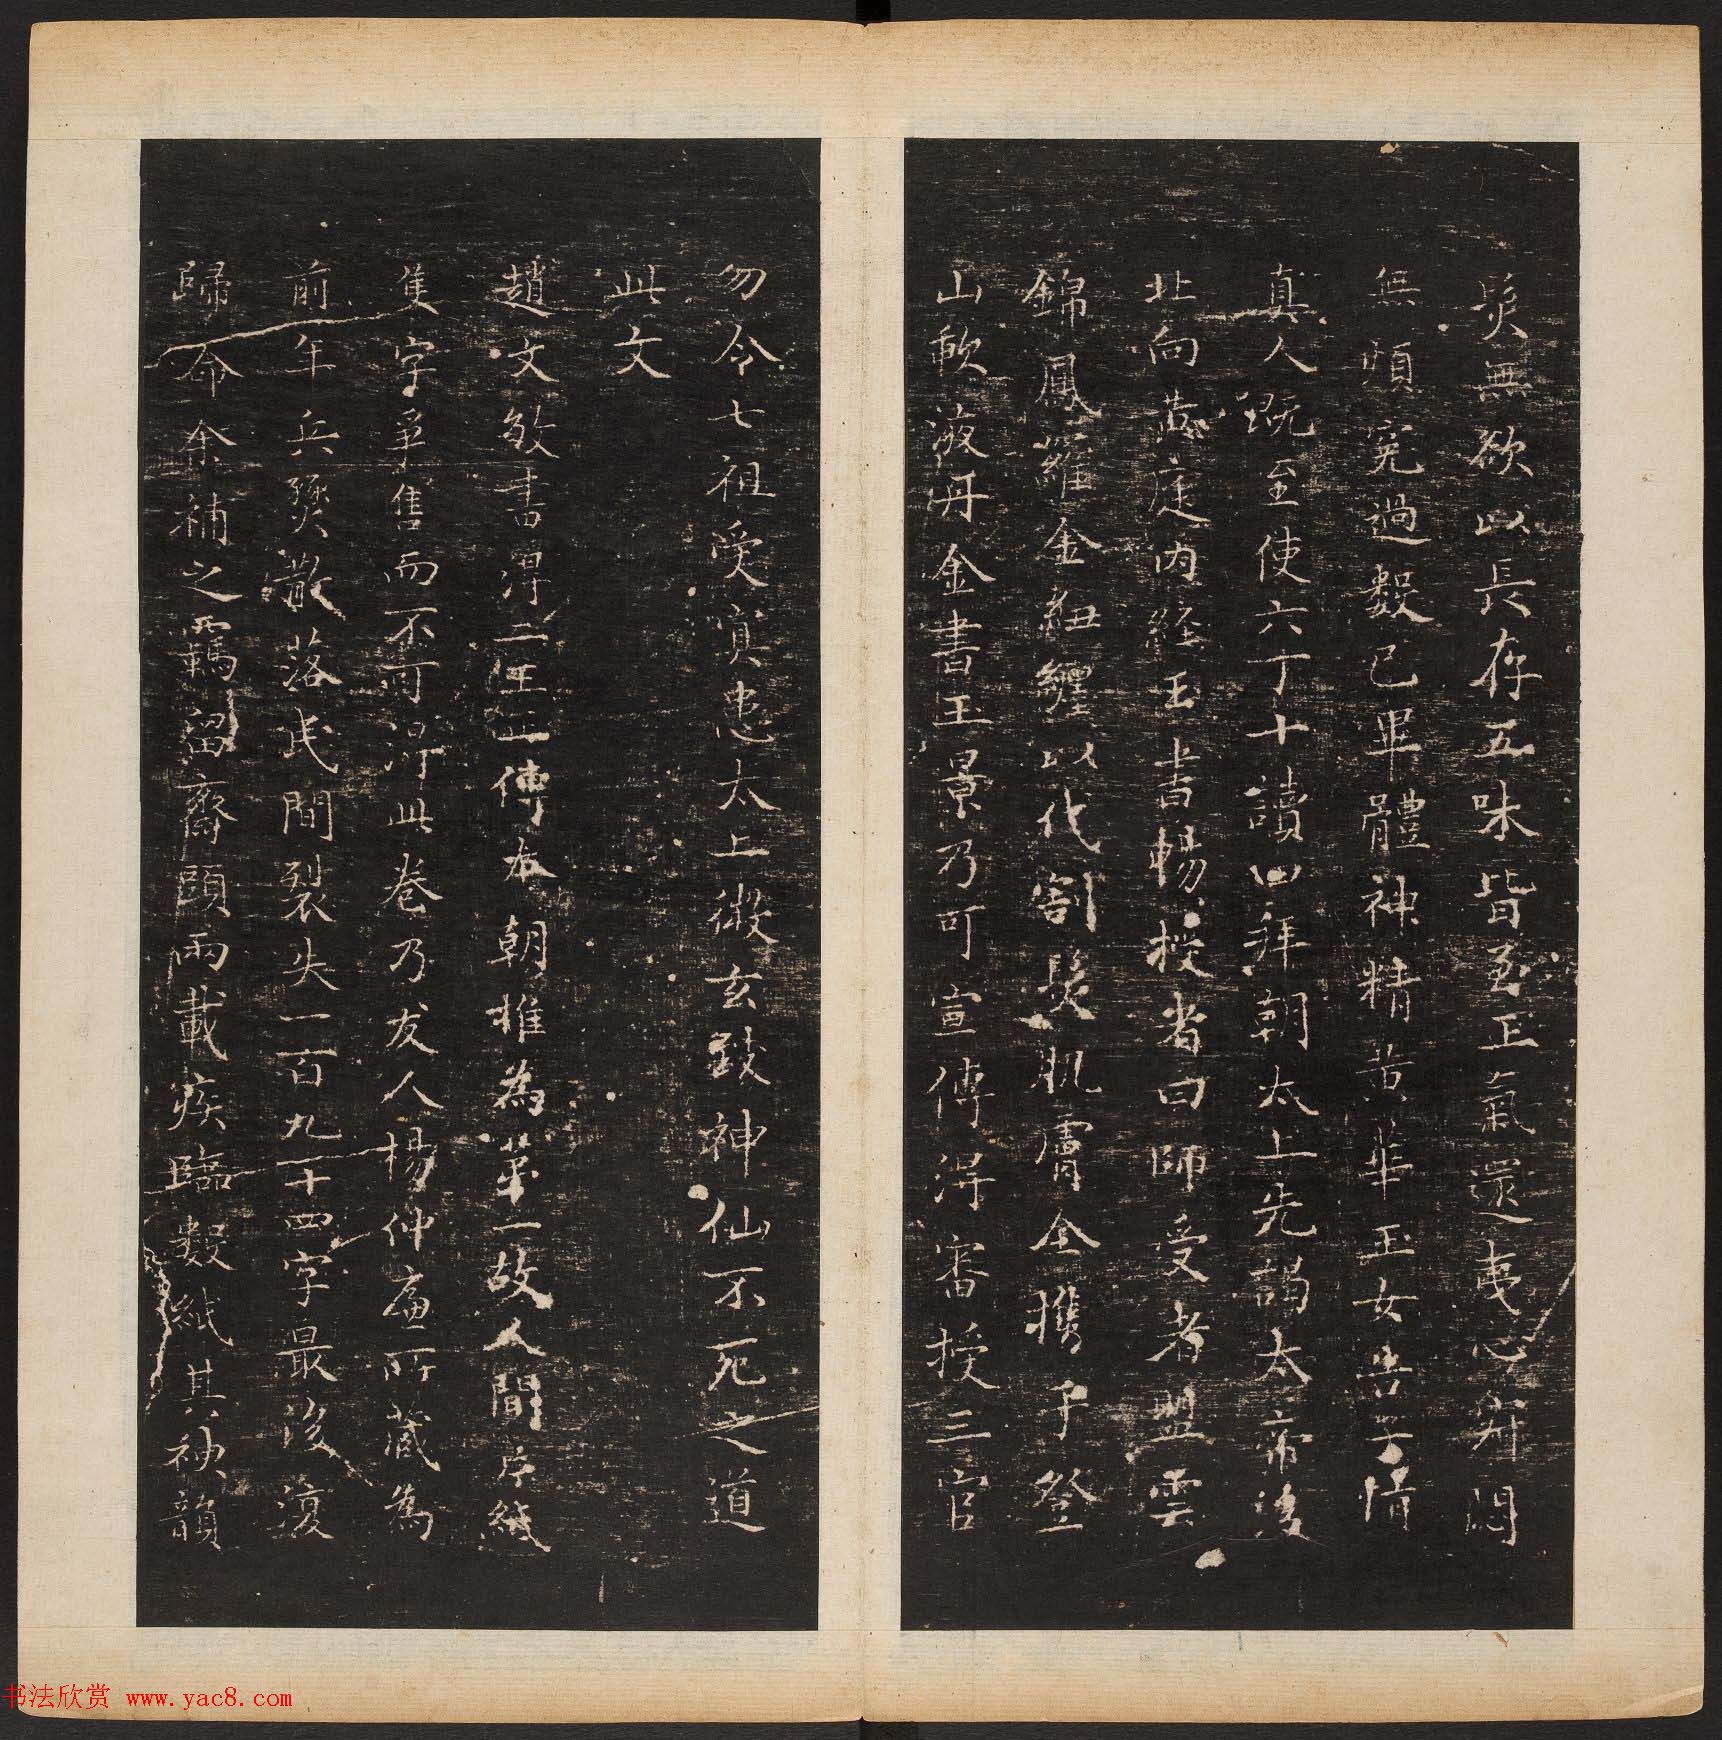 髮無欲以長存五味皆至正氣還夷心寂悶
無煩冤過數已畢體神精黃華玉女告子情
真人既至使六丁十讀四拜朝太上先謁太帝後
北向黃庭內經玉書暢授者曰師受者盟雲
錦鳳羅金紐纏以代割髮肌膚全攜手登
山歃液丹金書玉景乃可宣傳得審授三官
勿令七祖受冥患太上微玄致神仙不死之道
此文
趙文敏書得二王正傳本朝推為第一故人間片紙
隻字爭售而不可得此卷乃友人楊仲齋所藏為
前年兵燹散落民間裂失一百九十四字最後復
歸命余補之羈留齋頭兩載疾臨數紙其神韻
书法欣赏 www.yac8.com